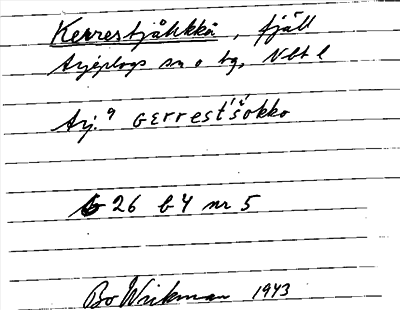 Kerrestjåkkå, fjäll
Arjeplogs sn o tg, Nbt l
Arj. 9 GErrest'š́okko
b 26 b 4 nr 5
Bo Wickman 1943